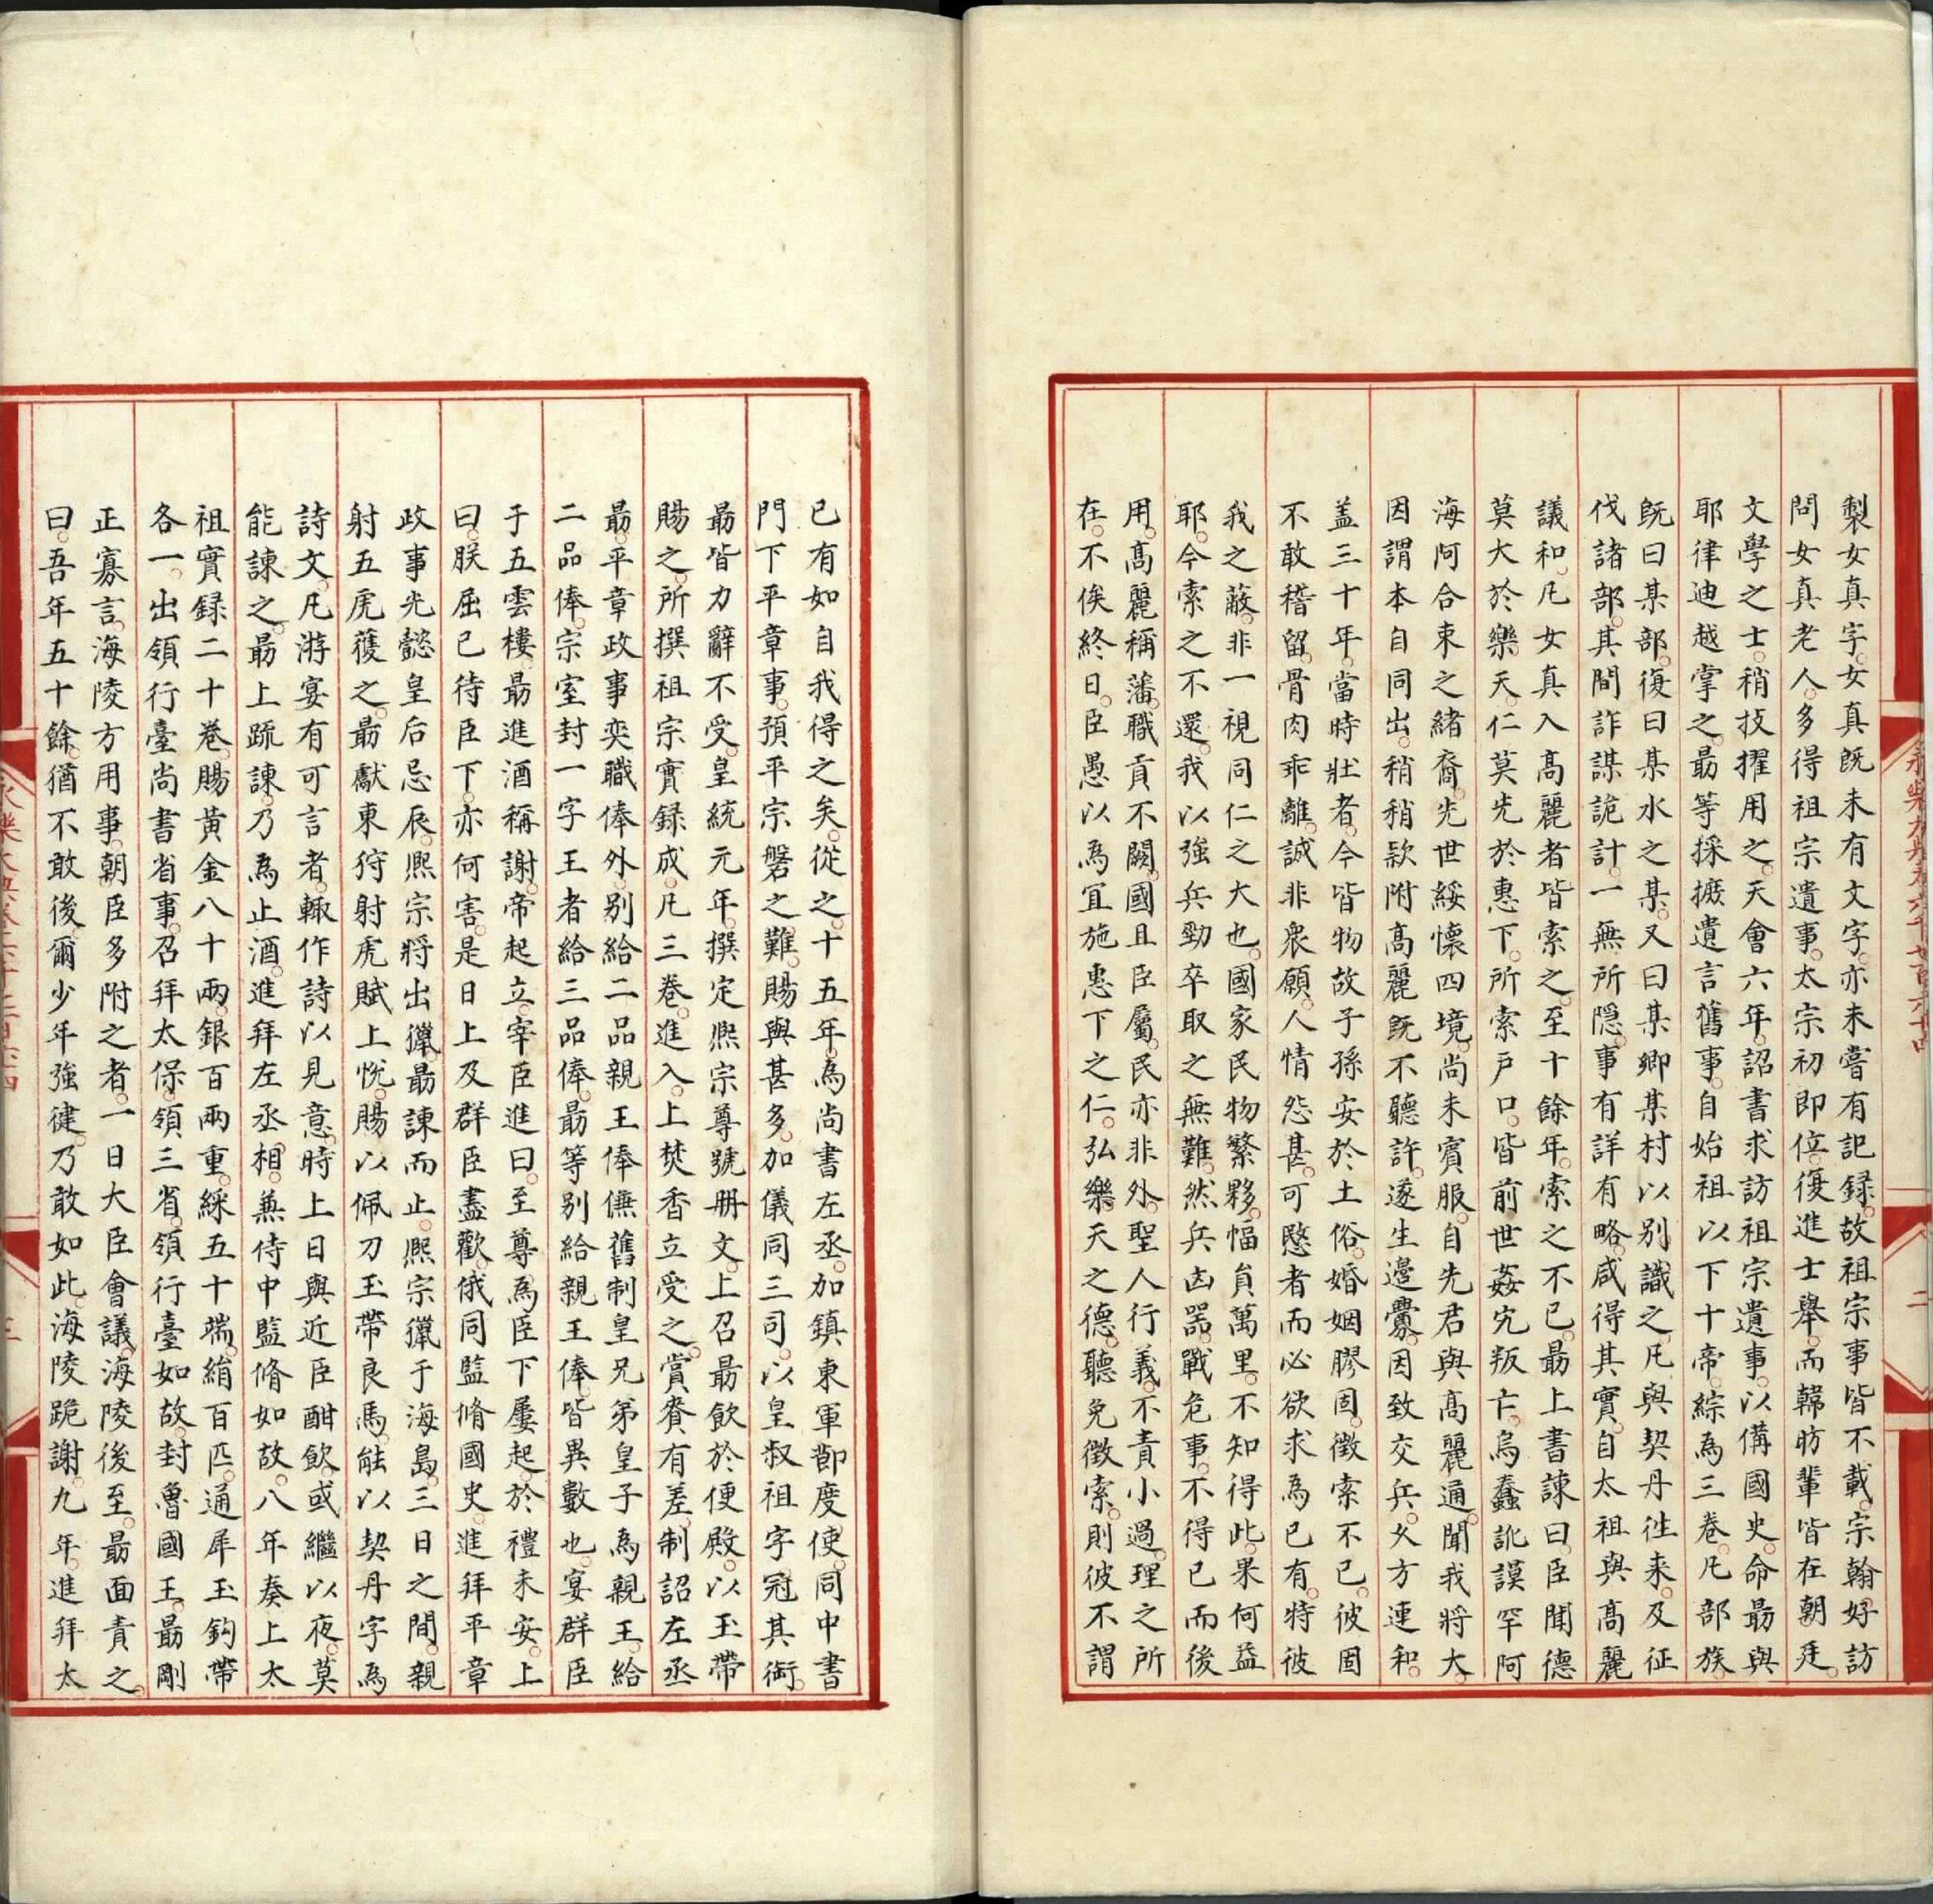 製女真字女真既未有文字亦未嘗有記録故祖宗事皆不載宗翰好訪
問女真老人多得祖宗遺事太宗初即位復進士舉而韓昉輩皆在朝廷
文學之士稍拔擢用之天會六年詔書求訪祖宗遺事以備國史命勗與
耶律迪越掌之勗等採摭遺言舊事自始祖以下十帝綜為三卷凡部族
既曰某部復曰某水之某又曰某鄉某村以別識之凡與契丹徃来及征
伐諸部其間詐謀詭計一無所隱事有詳有略咸得其實自太祖與高麗
議和凡女真入高麗者皆索之至十餘年索之不已勗上書諫曰臣聞德
莫大於樂天仁莫先於惠下所索戶口皆前世姦宄叛亡烏蠢訛謨罕阿
海阿合束之緒裔先世綏懷四境尚未賓服自先君與高麗通聞我將大
因謂本自同出稍稍欵附高麗既不聽許遂生邊釁因致交兵久方連和
盖三十年當時壯者今皆物故子孫安於土俗婚姻膠固徵索不已彼固
不敢稽留骨肉乖離誠非衆願人情怨甚可愍者而必欲求為已有特彼
我之蔽非一視同仁之大也國家民物繁夥幅員萬里不知得此果何益
耶今索之不還我以強兵勁卒取之無難然兵凶器戰危事不得已而後
用高麗稱藩職貢不闕國且臣屬民亦非外聖人行義不責小過理之所
在不俟終日臣愚以為宜施惠下之仁弘樂天之德聽免徵索則彼不謂
已有如自我得之矣從之十五年為尚書左丞加鎮東軍節度使同中書
門下平章事預平宗磐之難賜與甚多加儀同三司以皇叔祖字冠其銜
勗皆力辭不受皇統元年撰定熙宗尊號册文上召勗飲於便殿以玉帶
賜之所撰祖宗實録成凡三卷進入上焚香立受之賞賚有差制詔左丞
勗平章政事奕職俸外別給二品親王俸傔舊制皇兄弟皇子為親王給
二品俸宗室封一字王者給三品俸勗等別給親王俸皆異數也宴群臣
于五雲樓勗進酒稱謝帝起立宰臣進曰至尊為臣下屢起於禮未安上
曰朕屈已待臣下亦何害是日上及群臣盡歡俄同監脩國史進拜平章
政事光懿皇后忌辰熙宗將出獵勗諫而止熙宗獵于海島三日之間親
射五虎獲之勗獻東狩射虎賦上悅賜以佩刀玉帶良馬能以契丹字為
詩文凡游宴有可言者輙作詩以見意時上日與近臣酣飲或繼以夜莫
能諫之勗上疏諫乃為止酒進拜左丞相兼侍中監脩如故八年奏上太
祖實録二十卷賜黃金八十兩銀百兩重綵五十端絹百匹通犀玉鈎帶
各一出領行臺尚書省事召拜太保領三省領行臺如故封魯國王勗剛
正寡言海陵方用事朝臣多附之者一日大臣會議海陵後至勗面責之
曰吾年五十餘猶不敢後爾少年強健乃敢如此海陵跪謝九年進拜太